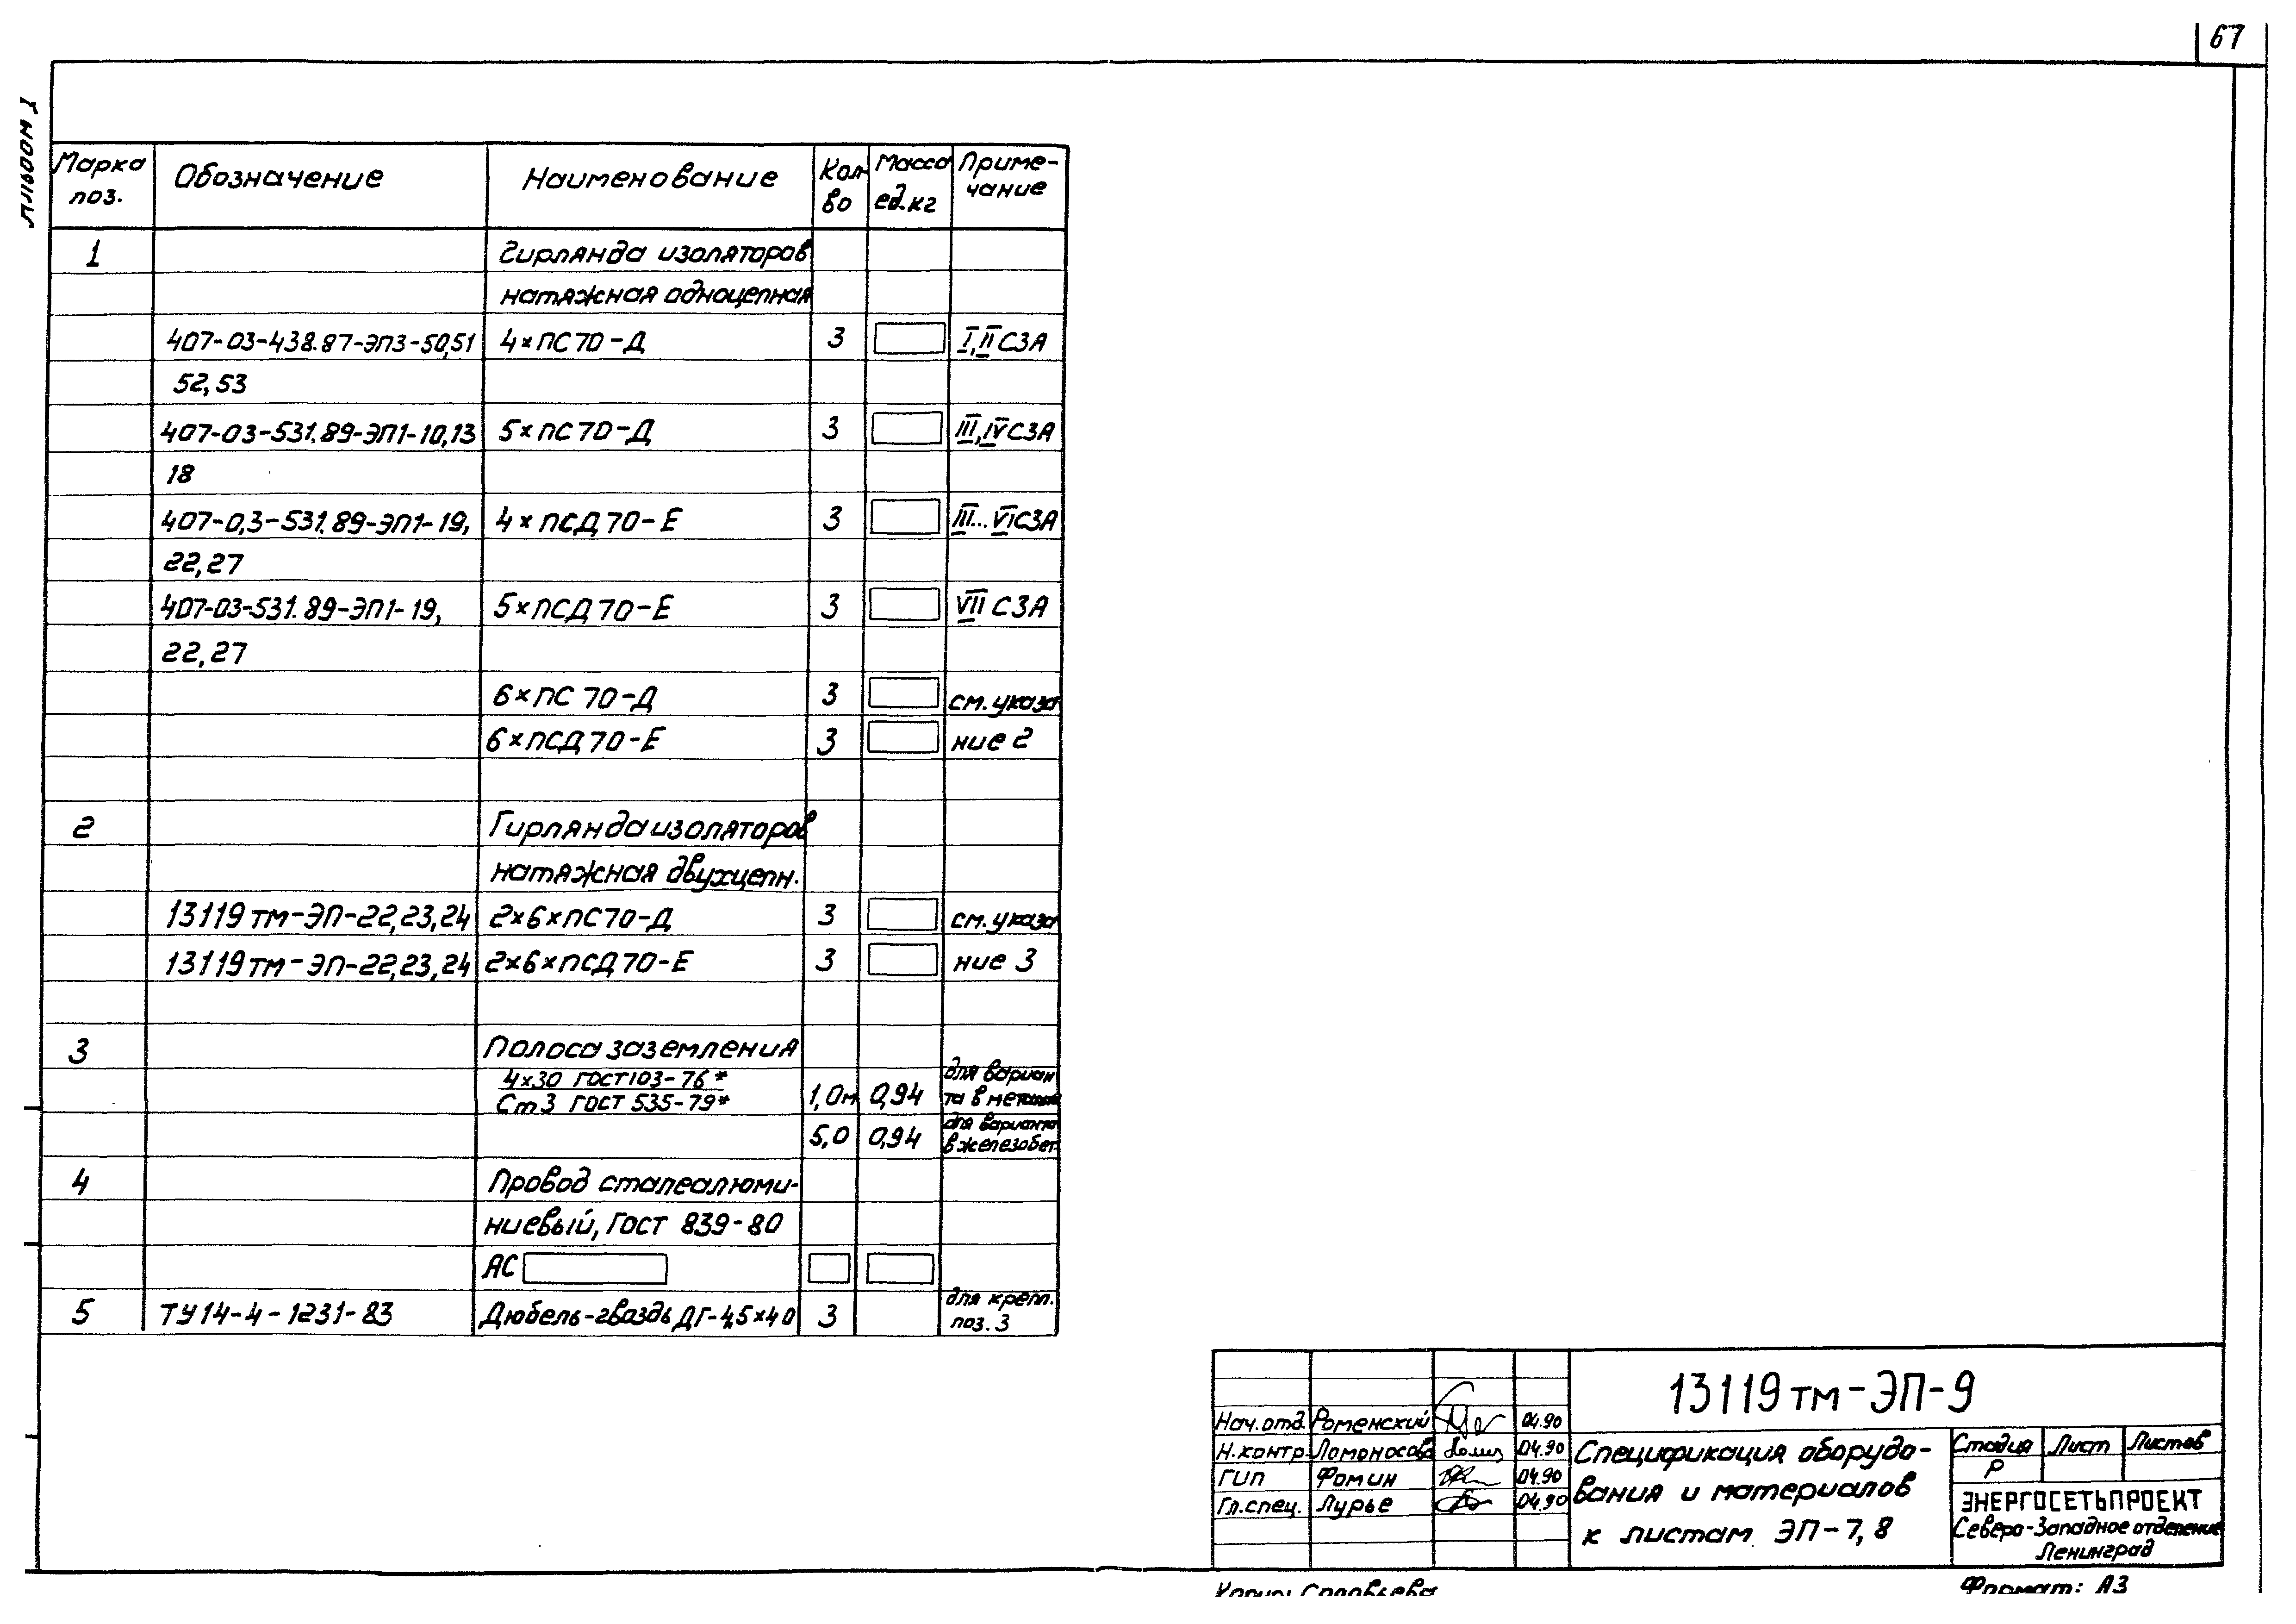 67
Альбом 1
Марка поз. Обозначение Наименование Кол-во Масса ед.кг Приме-чание
1 Гирлянда изоляторов
натяжная одноцепная
407-03-438.87-ЭП3-50,51 4×ПС70-Д 3 I,II СЗА
52,53
407-03-531.89-ЭП1-10,13 5×ПС70-Д 3 III,IV СЗА
18
407-0,3-531.89-ЭП1-19, 4×ПСД70-Е 3 III...VI СЗА
22,27
407-03-531.89-ЭП1-19, 5×ПСД70-Е 3 VII СЗА
22,27
6×ПС70-Д 3 см. указа
6×ПСД70-Е 3 ние 2
2 Гирлянда изоляторов
натяжная двухцепн.
13119тм-ЭП-22,23,24 2×6×ПС70-Д 3 см. указа
13119тм-ЭП-22,23,24 2×6×ПСД70-Е 3 ние 3
3 Полоса заземления
4×30 ГОСТ103-76* для вариан
Ст3 ГОСТ 535-79* 1,0м 0,94 та в металле
5,0 0,94 для варианта
в железобет.
4 Провод сталеалюми-
ниевый, ГОСТ 839-80
АС
5 ТУ14-4-1231-83 Дюбель-гвоздь ДГ-4,5×40 3 для крепл.
поз.3
13119тм-ЭП-9
Нач.отд. Роменский 04.90
Н.контр. Ломоносова 04.90
ГИП Фомин 04.90
Гл.спец. Лурье 04.90
Спецификация оборудо-
вания и материалов
к листам ЭП-7,8
Стадия Лист Листов
Р
ЭНЕРГОСЕТЬПРОЕКТ
Северо-Западное отделение
Ленинград
Копир: Соловьева
Формат: А3